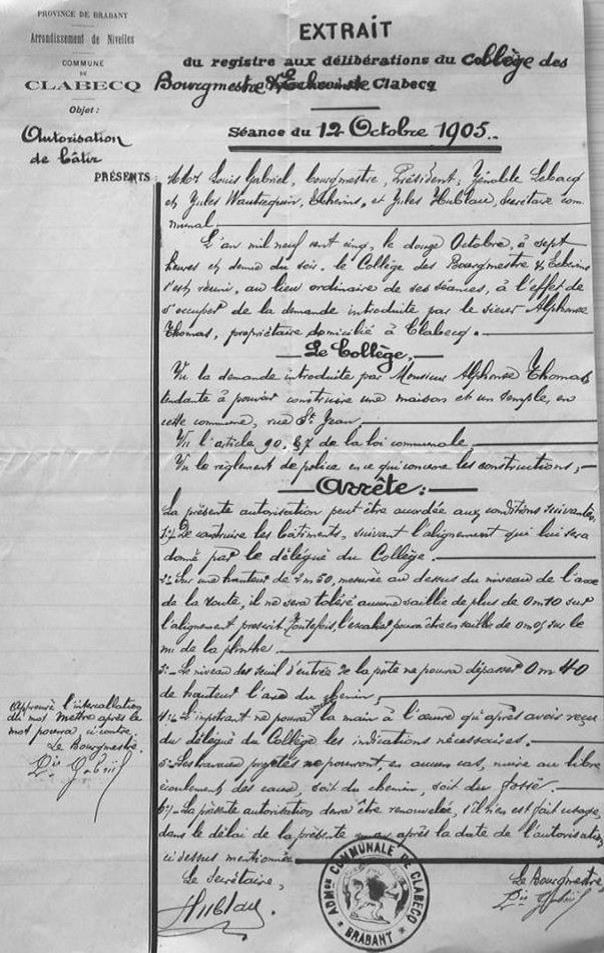 PROVINCE DE BRABANT
Arrondissement de Nivelles
COMMUNE
DE
CLABECQ
Objet :
Autorisation
de bâtir
EXTRAIT
du registre aux délibérations du Collège des
Bourgmestre & Echevins de Clabecq
Séance du 12 Octobre 1905.
PRÉSENTS :
Louis Gabriel, bourgmestre, Président; Lebacq
et Jules Wautrequin, Echevins, et Jules Hublau, Secrétaire com-
munal
L'an mil neuf cent cinq, le douze Octobre, à sept
heures et demie du soir, le Collège des Bourgmestre & Echevins
s'est réuni, au lieu ordinaire de ses séances, à l'effet de
s'occuper de la demande introduite par le sieur Alphonse
Thomas, propriétaire domicilié à Clabecq.
Le Collège,
Vu la demande introduite par Monsieur Alphonse Thomas
tendante à pouvoir construire une maison et un temple, en
cette commune, rue St Jean
Vu l'article 90, §7 de la loi communale
Vu le règlement de police en ce qui concerne les constructions,
Arrête :
La présente autorisation peut être accordée aux conditions suivantes,
1: De construire les bâtiments, suivant l'alignement qui lui sera
donné par le délégué du Collège.
2: Sur une hauteur de 2m50, mesurée au dessus du niveau de l'axe
de la route, il ne sera toléré aucune saillie de plus de 0m10 sur
l'alignement prescrit. Toutefois, l'escalier pourra être en saillie de 0m05 sur le
nu de la plinthe.
3: Le niveau des seuil d'entrée de la porte ne pourra dépasser 0m40
de hauteur l'axe du chemin,
4: L'impétrant ne pourra mettre la main à l'œuvre qu'après avoir reçu
du délégué du Collège les indications nécessaires.
5: Les travaux projetés ne pourront, en aucun cas, nuire au libre
écoulement des eaux, soit du chemin, soit du fossé.
6: La présente autorisation devra être renouvelée, s'il n'en est fait usage,
dans le délai de la présente après la date de l'autorisation
ci dessus mentionnée
Approuvé l'intercallation
du mot mettre après le
mot pourra, ci contre.
Le Bourgmestre,
Gabriel
Le Secrétaire,
Hublau
ADMon COMMUNALE DE CLABECQ
BRABANT
Le Bourgmestre,
Gabriel